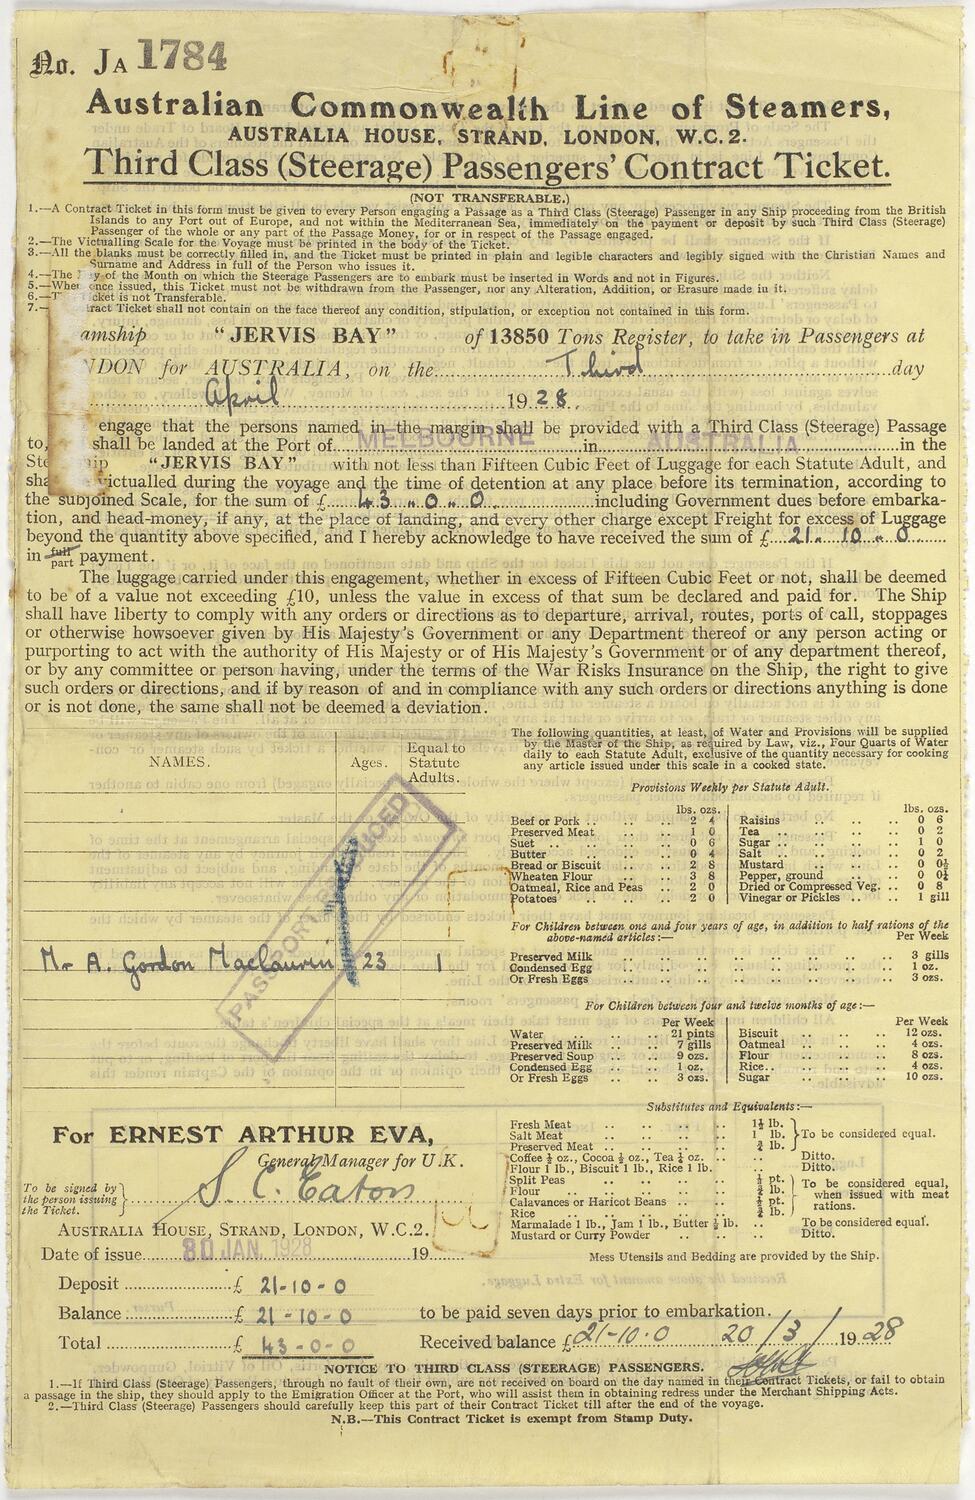 No. JA 1784
Australian Commonwealth Line of Steamers,
AUSTRALIA HOUSE, STRAND, LONDON, W.C.2.
Third Class (Steerage) Passengers' Contract Ticket.
(NOT TRANSFERABLE.)
1.—A Contract Ticket in this form must be given to every Person engaging a Passage as a Third Class (Steerage) Passenger in any Ship proceeding from the British
Islands to any Port out of Europe, and not within the Mediterranean Sea, immediately on the payment or deposit by such Third Class (Steerage)
Passenger of the whole or any part of the Passage Money, for or in respect of the Passage engaged.
2.—The Victualling Scale for the Voyage must be printed in the body of the Ticket.
3.—All the blanks must be correctly filled in, and the Ticket must be printed in plain and legible characters and legibly signed with the Christian Names and
Surname and Address in full of the Person who issues it.
4.—The y of the Month on which the Steerage Passengers are to embark must be inserted in Words and not in Figures.
5.—When once issued, this Ticket must not be withdrawn from the Passenger, nor any Alteration, Addition, or Erasure made in it.
6.—T icket is not Transferable.
7.— ract Ticket shall not contain on the face thereof any condition, stipulation, or exception not contained in this form.
amship "JERVIS BAY" of 13850 Tons Register, to take in Passengers at
NDON for AUSTRALIA, on the Third day
April 1928.
engage that the persons named in the margin shall be provided with a Third Class (Steerage) Passage
to, shall be landed at the Port of MELBOURNE in AUSTRALIA in the
Ste ip "JERVIS BAY" with not less than Fifteen Cubic Feet of Luggage for each Statute Adult, and
sha victualled during the voyage and the time of detention at any place before its termination, according to
the subjoined Scale, for the sum of £ 43 - 0 - 0 including Government dues before embarka-
tion, and head-money, if any, at the place of landing, and every other charge except Freight for excess of Luggage
beyond the quantity above specified, and I hereby acknowledge to have received the sum of £ 21 - 10 - 0
in full/part payment.
The luggage carried under this engagement, whether in excess of Fifteen Cubic Feet or not, shall be deemed
to be of a value not exceeding £10, unless the value in excess of that sum be declared and paid for. The Ship
shall have liberty to comply with any orders or directions as to departure, arrival, routes, ports of call, stoppages
or otherwise howsoever given by His Majesty's Government or any Department thereof or any person acting or
purporting to act with the authority of His Majesty or of His Majesty's Government or of any department thereof,
or by any committee or person having, under the terms of the War Risks Insurance on the Ship, the right to give
such orders or directions, and if by reason of and in compliance with any such orders or directions anything is done
or is not done, the same shall not be deemed a deviation.
NAMES. Ages. Equal to Statute Adults.
PASSPORT PRODUCED
Mr A. Gordon Maclaurin 23 1
The following quantities, at least, of Water and Provisions will be supplied
by the Master of the Ship, as required by Law, viz., Four Quarts of Water
daily to each Statute Adult, exclusive of the quantity necessary for cooking
any article issued under this scale in a cooked state.
Provisions Weekly per Statute Adult.
lbs. ozs. lbs. ozs.
Beef or Pork 2 4 Raisins 0 6
Preserved Meat 1 0 Tea 0 2
Suet 0 6 Sugar 1 0
Butter 0 4 Salt 0 2
Bread or Biscuit 2 8 Mustard 0 0½
Wheaten Flour 3 8 Pepper, ground 0 0¼
Oatmeal, Rice and Peas 2 0 Dried or Compressed Veg. 0 8
Potatoes 2 0 Vinegar or Pickles 1 gill
For Children between one and four years of age, in addition to half rations of the
above-named articles:—
Per Week
Preserved Milk 3 gills
Condensed Egg 1 oz.
Or Fresh Eggs 3 ozs.
For Children between four and twelve months of age:—
Per Week Per Week
Water 21 pints Biscuit 12 ozs.
Preserved Milk 7 gills Oatmeal 4 ozs.
Preserved Soup 9 ozs. Flour 8 ozs.
Condensed Egg 1 oz. Rice 4 ozs.
Or Fresh Eggs 3 ozs. Sugar 10 ozs.
Substitutes and Equivalents:—
Fresh Meat 1¼ lb.
Salt Meat 1 lb. To be considered equal.
Preserved Meat ¾ lb.
Coffee ½ oz., Cocoa ½ oz., Tea ¼ oz. Ditto.
Flour 1 lb., Biscuit 1 lb., Rice 1 lb. Ditto.
Split Peas ½ pt. To be considered equal,
Flour ½ lb. when issued with meat
Calavances or Haricot Beans ½ pt. rations.
Rice ¾ lb.
Marmalade 1 lb., Jam 1 lb., Butter ½ lb. To be considered equal.
Mustard or Curry Powder Ditto.
Mess Utensils and Bedding are provided by the Ship.
For ERNEST ARTHUR EVA,
General Manager for U.K.
To be signed by
the person issuing
the Ticket.
S. C. Eaton
AUSTRALIA HOUSE, STRAND, LONDON, W.C.2.
Date of issue 30 JAN. 1928 19
Deposit £ 21-10-0
Balance £ 21-10-0 to be paid seven days prior to embarkation.
Total £ 43-0-0 Received balance £ 21-10-0 20/3/1928
NOTICE TO THIRD CLASS (STEERAGE) PASSENGERS.
1.—If Third Class (Steerage) Passengers, through no fault of their own, are not received on board on the day named in their Contract Tickets, or fail to obtain
a passage in the ship, they should apply to the Emigration Officer at the Port, who will assist them in obtaining redress under the Merchant Shipping Acts.
2.—Third Class (Steerage) Passengers should carefully keep this part of their Contract Ticket till after the end of the voyage.
N.B.—This Contract Ticket is exempt from Stamp Duty.